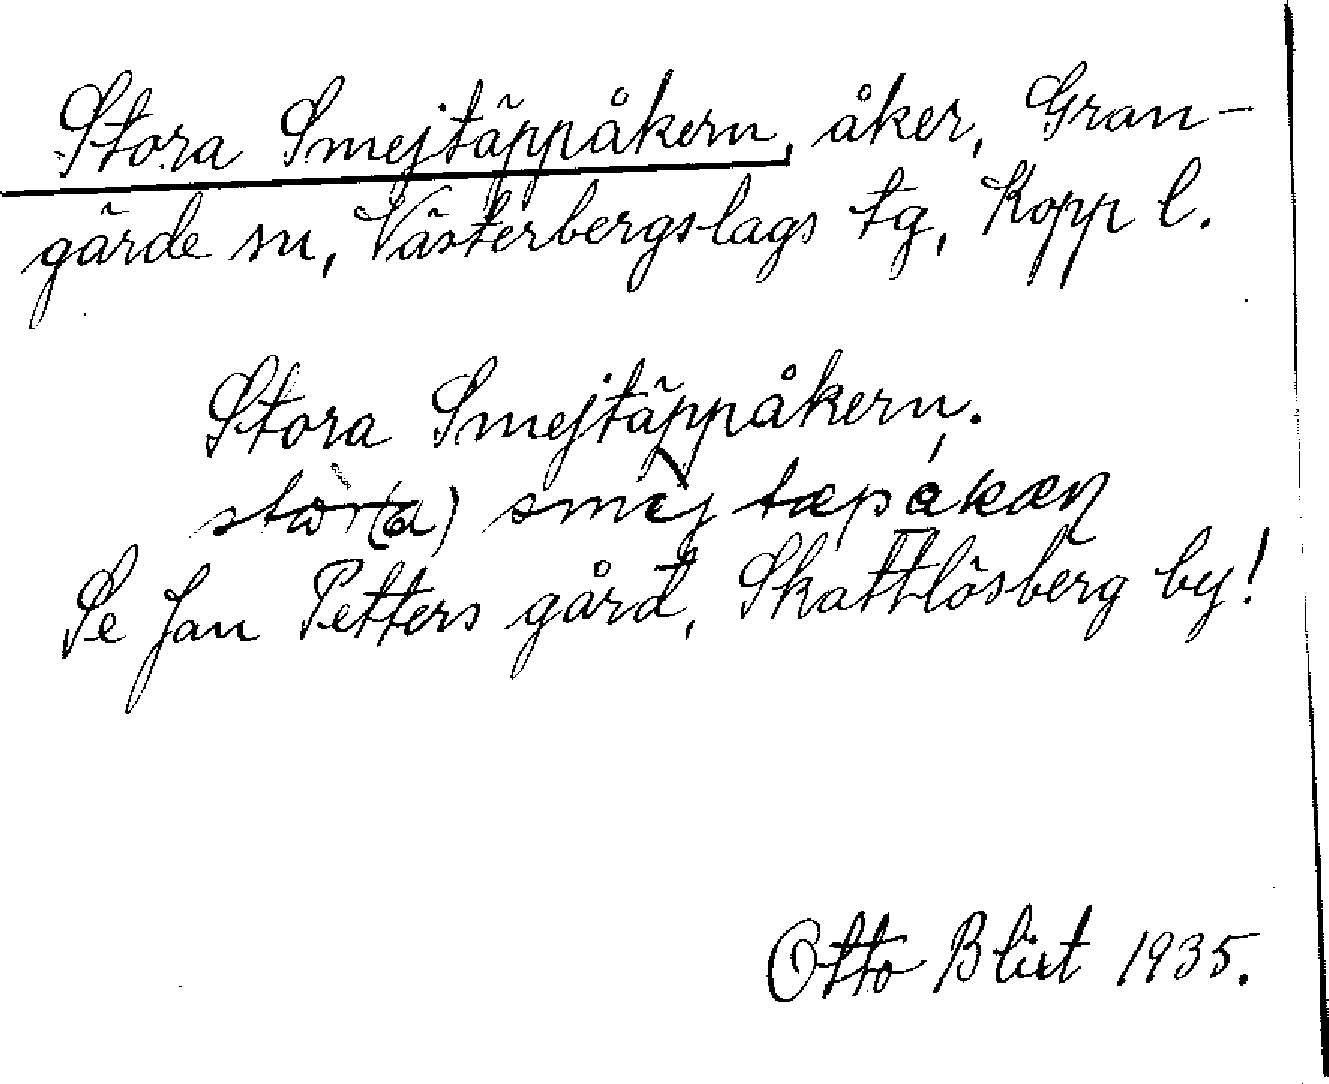 Stora Smejtäppåkern, åker, Gran-
gärde sn, Västerbergslags tg, Kopp l.
Stora Smejtäppåkern.
stòr(a) smej tæpåkæɳ
Se Jan Petters gård, Skattlösberg by!
Otto Blixt 1935.